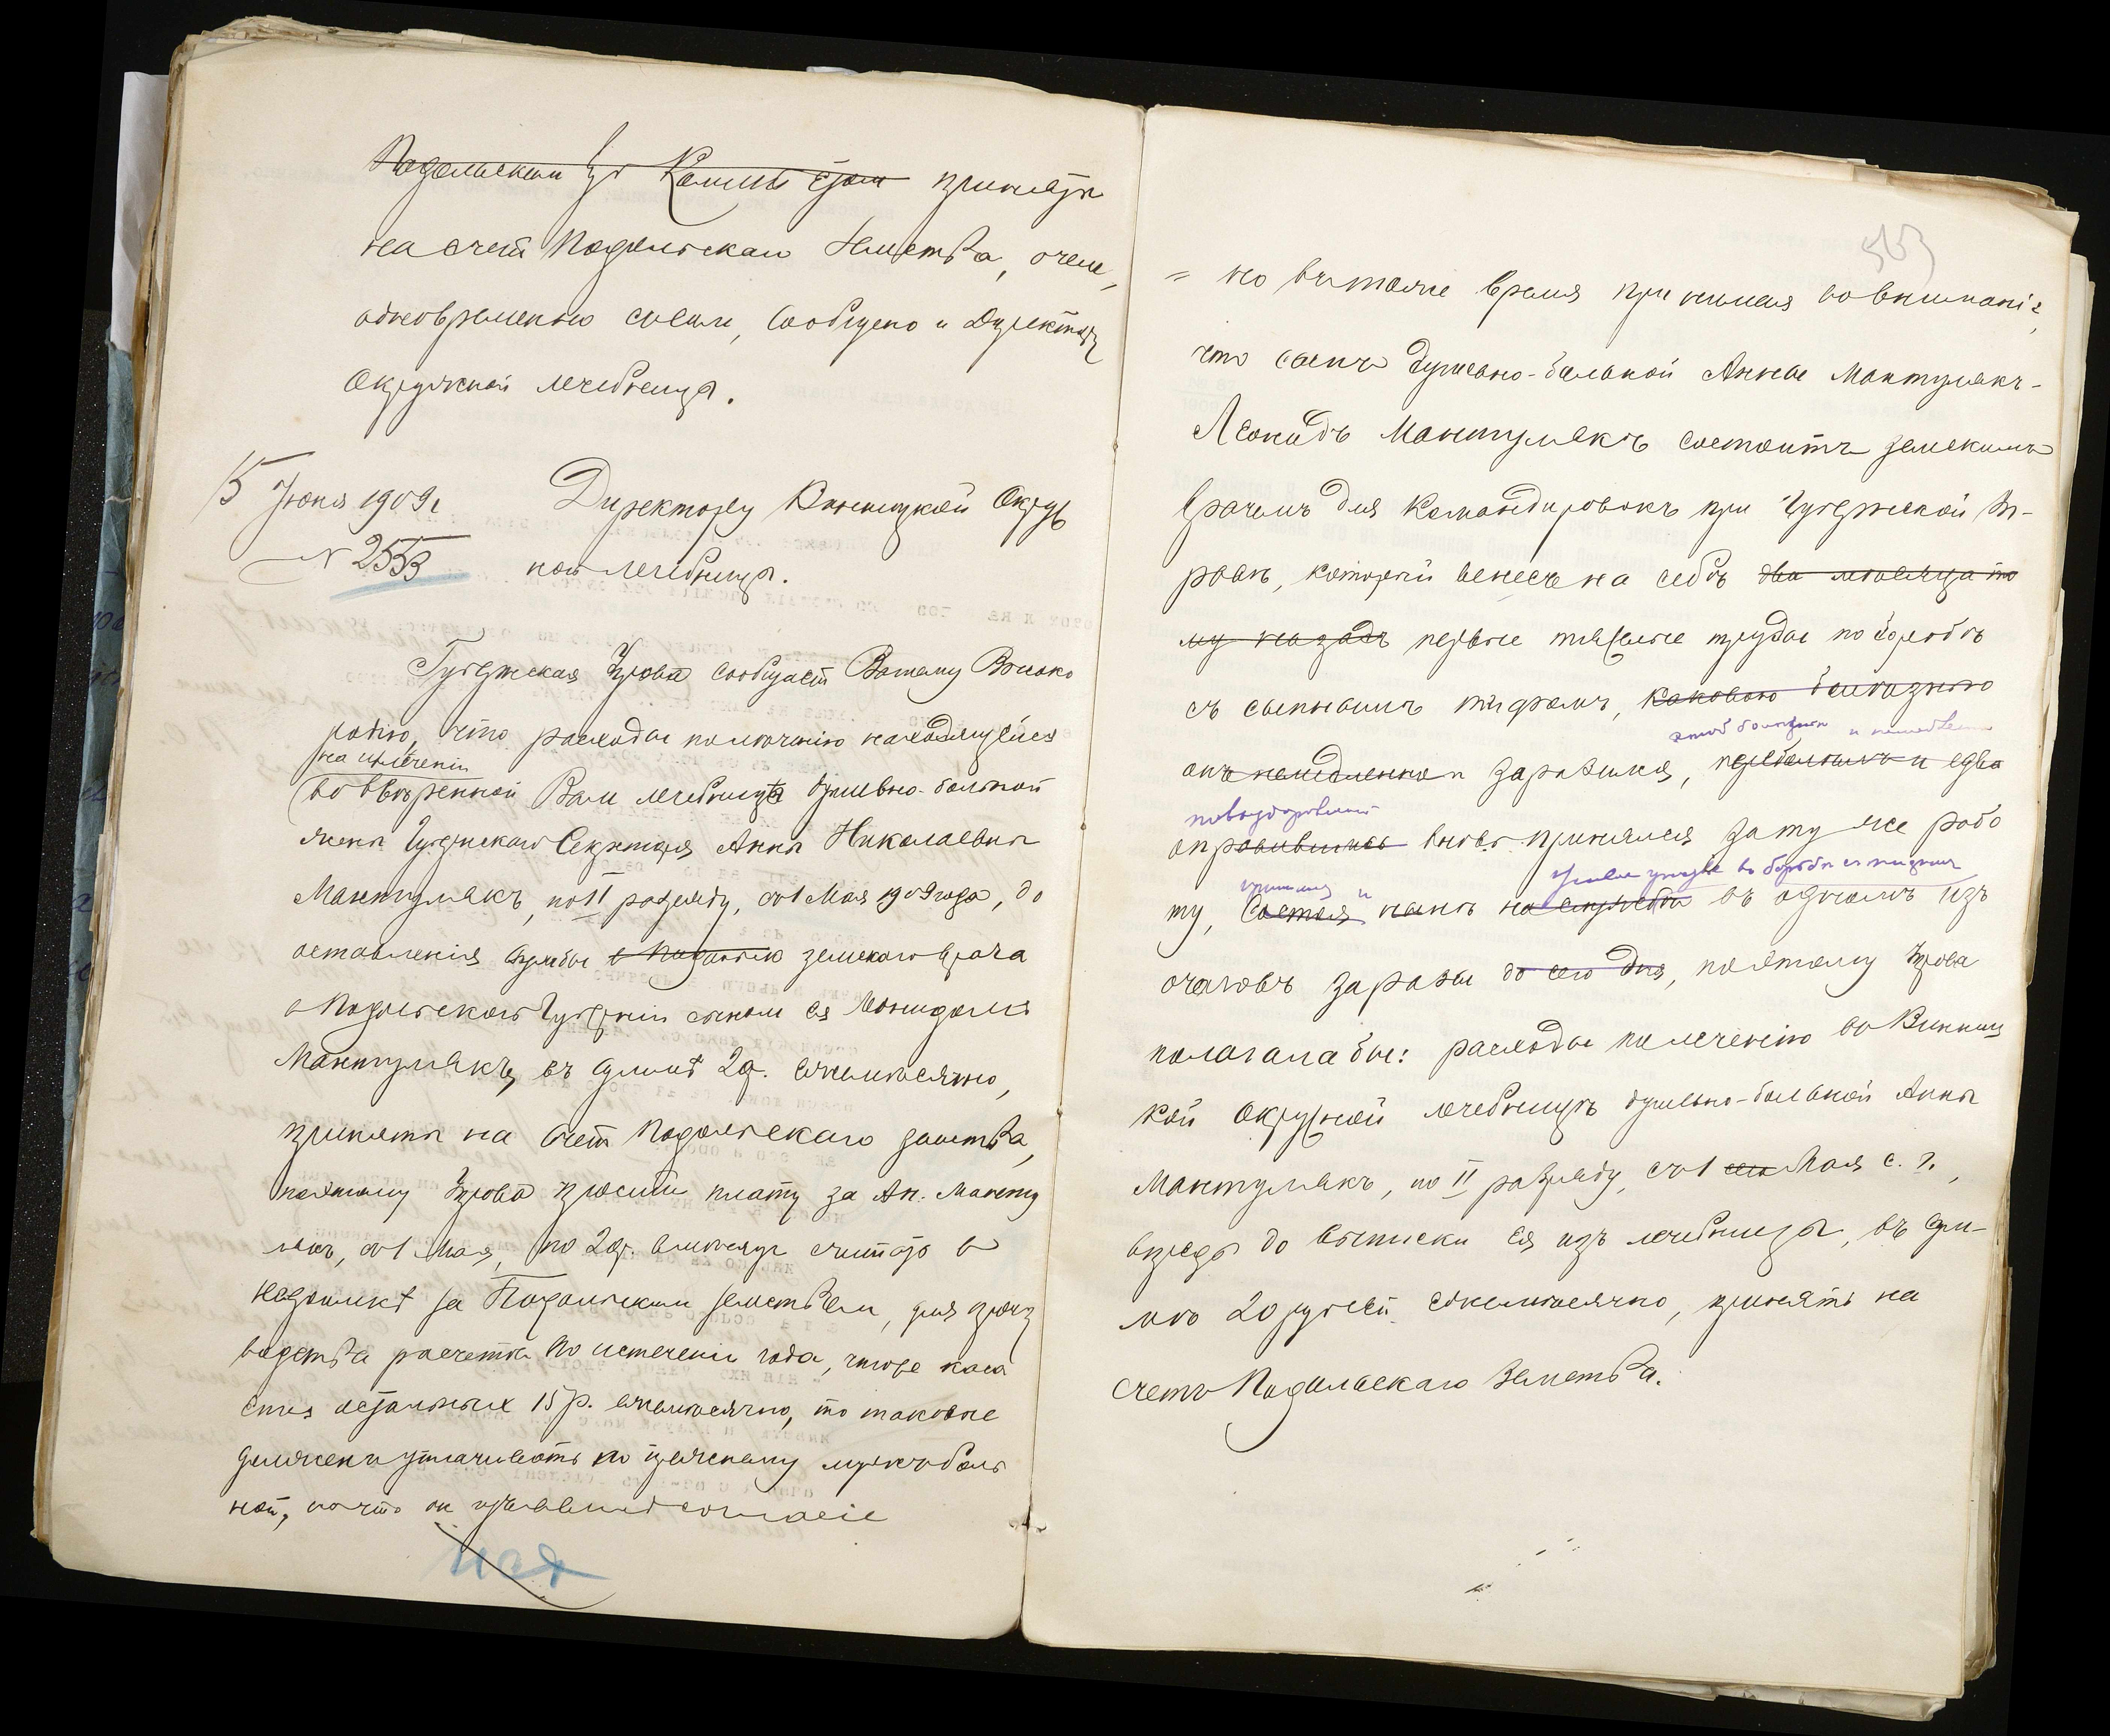 Подольскимъ Гу Комитетомъ приняты
на счетъ Подольскаго Земства, о чемъ,
одновременно съ симъ, сообщено и Директору
Окружной лечебницы.
15 Іюня 1909 г
N 2553
Директору Винницкой Окруж
ной лечебницы.
Губернская Управа сообщаетъ Вашему Высоко
родію, что расходы по лечению находящейся
на излѣченіи
во ввѣренной Вамъ лечебницѣ душевно-больной
жены Губернскаго Секретаря Анны Николаевны
Мантулякъ, по II разряду, съ 1 Мая 1909 года, до
оставленія службы в Подольск земскаго врача
в Подольской Губерніи сыномъ ея Леонидомъ
Мантулякъ, въ суммѣ 20 р. ежемѣсячно,
приняты на счет Подольскаго земства,
поэтому Управа проситъ плату за Ан. Манту
лякъ, съ 1 Мая, по 20 р. в мѣсяцъ считать в
недоимкѣ за Подольскимъ земствомъ, для произ
водства расчета по истеченіи года, что же каса
ется остальныхъ 15 р. ежемѣсячно, то таковые
должен уплачивать по прежнему мужъ боль
ной, на что он изъявилъ согласіе
503
= но въ тоже время принимая во вниманіе,
что сынъ душевно-больной Анны Мантулякъ-
Леонидъ Мантулякъ состоитъ земскимъ
врачемъ для командировокъ при Губернской Уп-
равѣ, который вынесъ на себѣ два мѣсяца то
му назадъ первые тяжелые труды по борьбѣ
съ сыпнымъ тифомъ, каковою болѣзнью
этой болѣзнью и
онъ немедленно и заразился, переболѣлъ и едва
по выздоровленіи
оправившись вновь принялся за ту же рабо
принимая и участіе въ борьбѣ съ тифомъ
ту, состоя нынѣ на службѣ въ одномъ изъ
очаговъ заразы до сего дня, поэтому Управа
полагала бы: расходы по лечению въ Винниц
кой Окружной лечебницѣ душевно-больной Анны
Мантулякъ, по II разряду, съ 1 сего Мая с. г.,
впредь до выписки ея изъ лечебницы, въ сум-
мѣ 20 рублей ежемѣсячно, принять на
счетъ Подольскаго Земства.